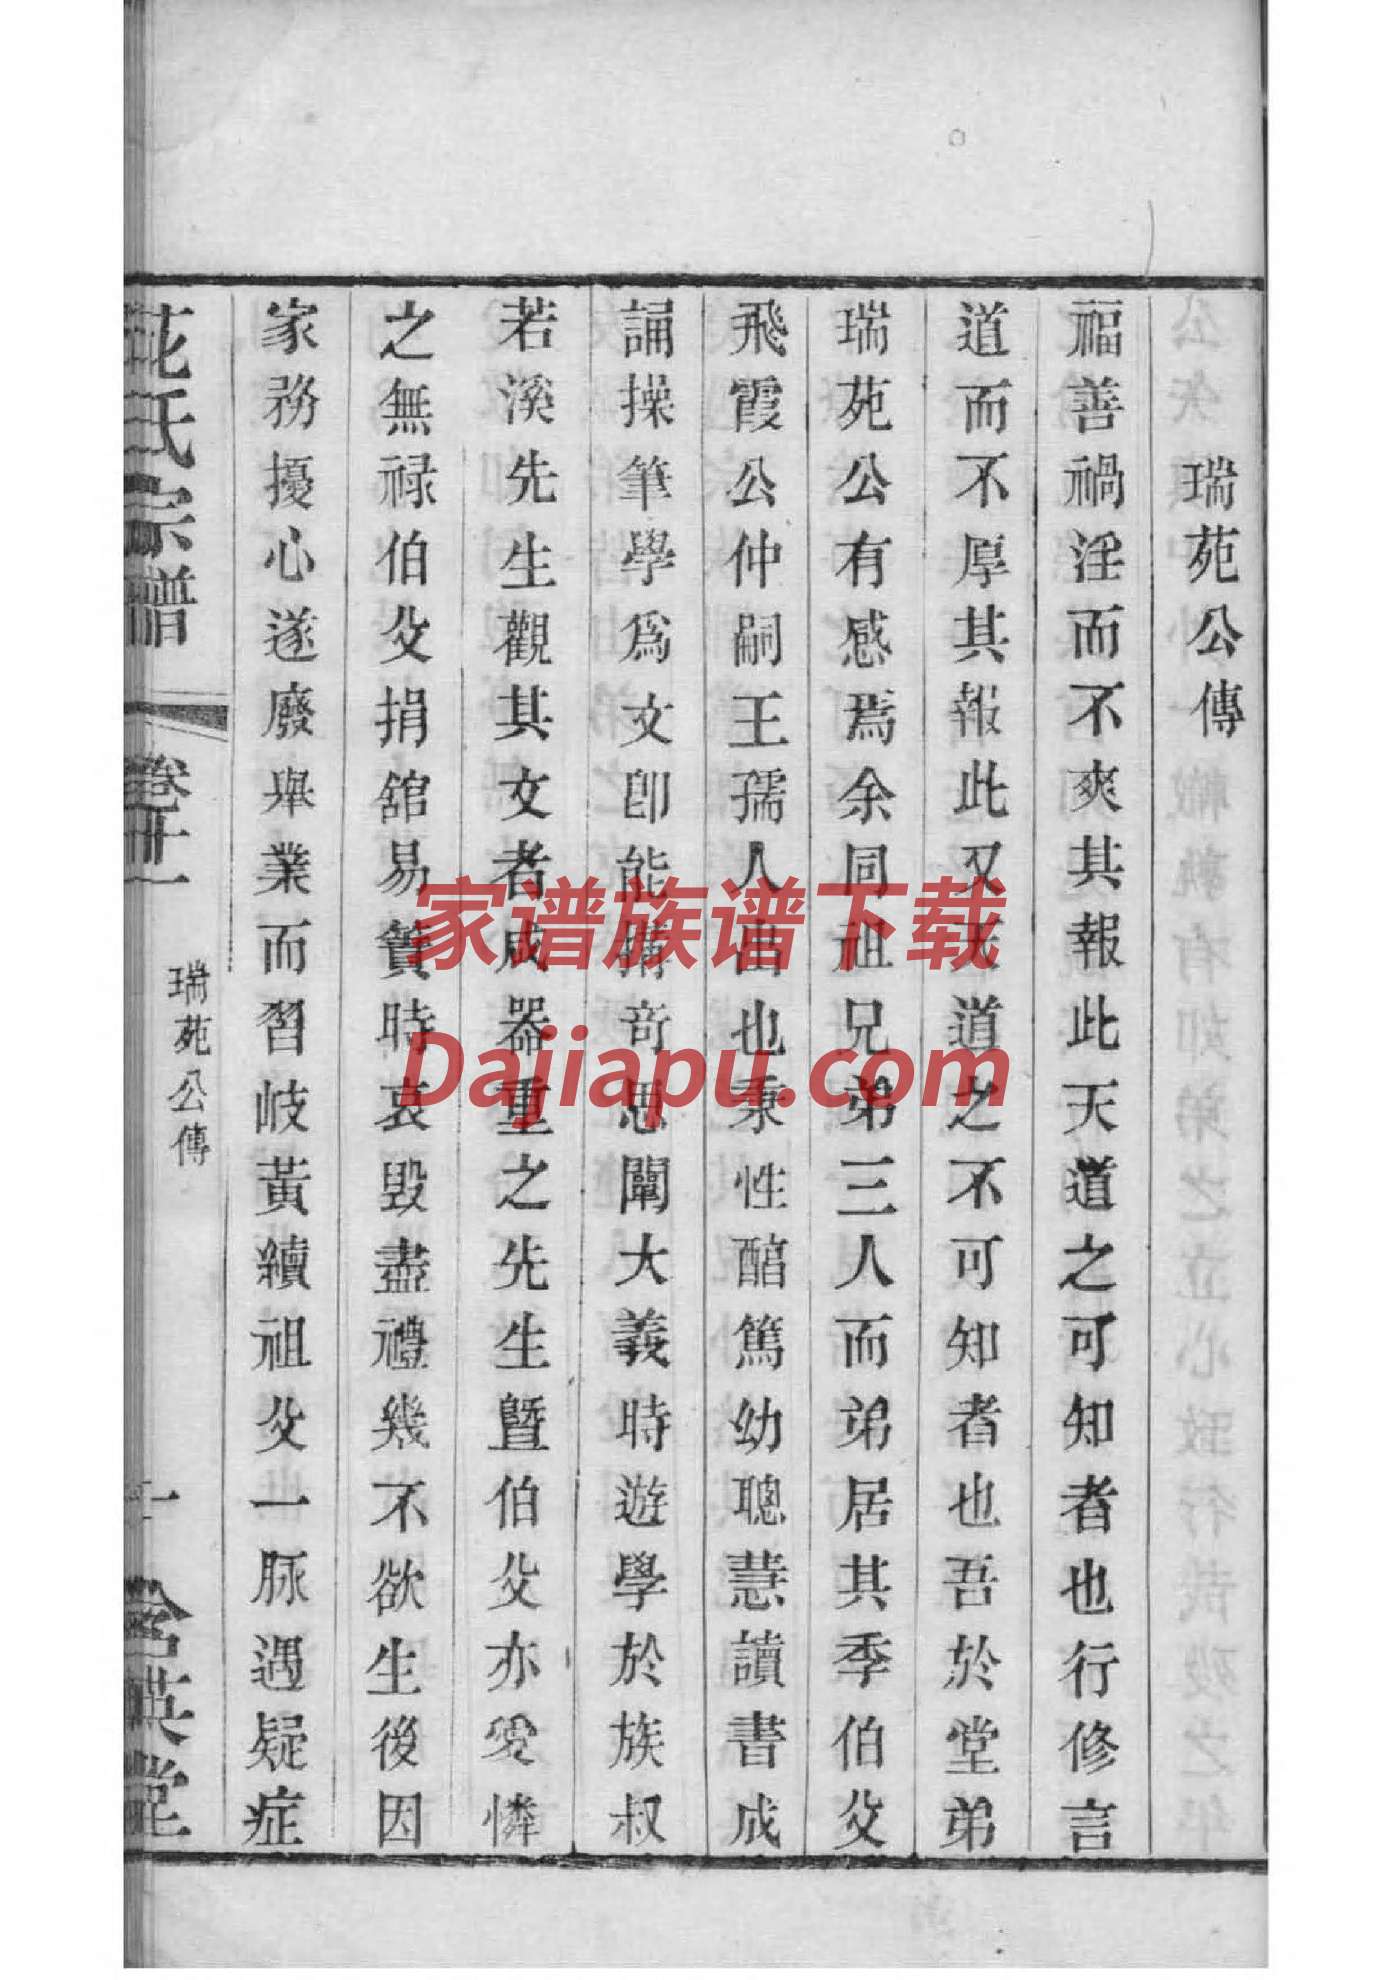 瑞苑公傳
福善禍淫而不爽其報此天道之可知者也行修言
道而不厚其報此又天道之不可知者也吾於堂弟
瑞苑公有感焉余同祖兄弟三人而弟居其季伯父
飛霞公仲嗣王孺人出也秉性醇篤幼聰慧讀書成
誦操筆學爲文卽能搆奇思闡大義時遊學於族叔
若溪先生觀其文者咸器重之先生曁伯父亦愛憐
之無祿伯父捐舘易簀時哀毀盡禮幾不欲生後因
家務擾心遂廢舉業而習岐黃續祖父一脈遇疑症
花氏宗譜
卷十一
瑞苑公傳
十
含英堂
家谱族谱下载
Dajiapu.com